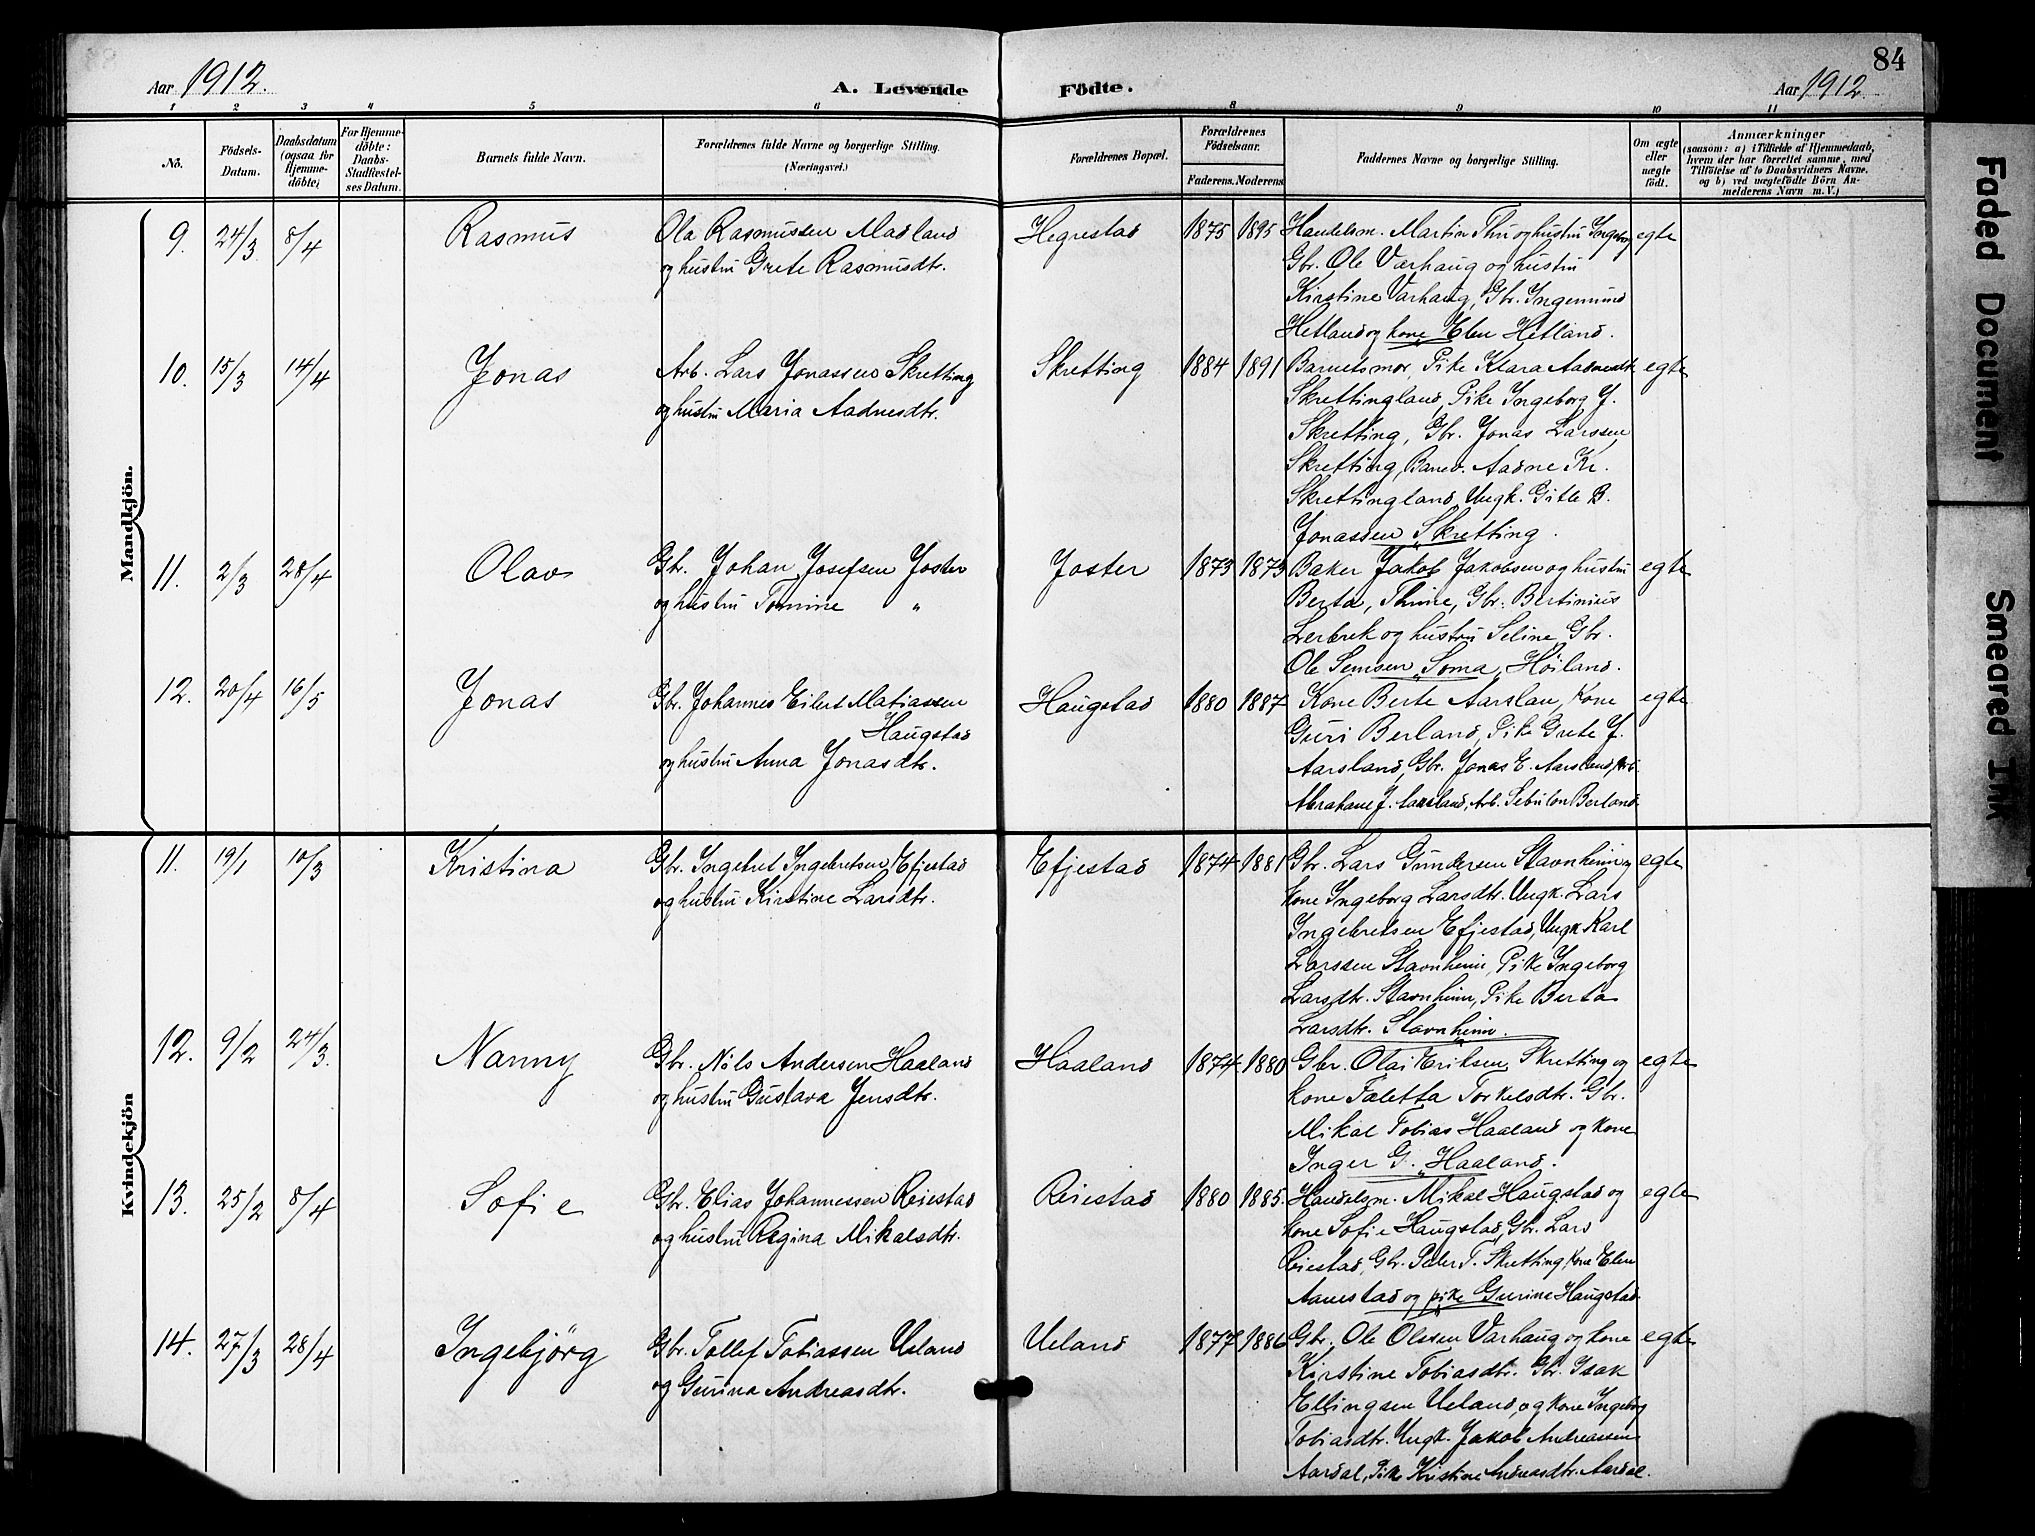 84
Aar 1912.
A. Levende Födte.
Aar 1912.
1 2 3 4 5 6 8 9 10 11
No.
Födsels-
Datum.
Daabsdatum
(ogsaa for
Hjemme-
döbte)
For Hjemme-
döbte:
Daabs-
Stadfestel-
ses Datum.
Barnets fulde Navn.
Forældrenes fulde Navne og borgerlige Stilling.
(Næringsvei.)
Forældrenes Bopæl.
Forældrenes
Födselsaar.
Faderens. Moderens.
Faddernes Navne og borgerlige Stilling.
Om ægte
eller
uægte
födt.
Anmærkninger
(saasom: a) i Tilfælde af Hjemmedaab,
hvem der har forrettet samme, med
Tilföielse af to Daabsvidners Navne.
og b) ved uægtefödte Börn An-
melderens Navn m. V.)
Mandkjön.
9. 24/3 8/4 Rasmus
Ola Rasmussen Madland
og hustru Grete Rasmusdtr.
Hegrestad 1875 1895
Handelsm. Martin Thu og hustru Ingeborg
Gbr. Ole Varhaug og hustru
Kirstine Varhaug, Gbr. Ingemund
Hetland og kone Elen Hetland.
egte
10. 15/3 14/4 Jonas
Arb. Lars Jonassen Skretting
og hustru Maria Aadnesdtr.
Skretting 1884 1891
Barnets mor, Pike Klara Aadnesdtr.
Skrettingland, Pike Ingeborg J.
Skretting, Gbr. Jonas Larssen
Skretting, Banev. Aadne Kr.
Skrettingland, Ungk. Gitle B.
Jonassen Skretting.
egte
11. 2/3 28/4 Olav
Gbr. Johan Josefsen Joster
og hustru Tomine "
Joster 1873 1873
Baker Jakob Jakobsen og hustru
Berta, Thime, Gbr. Bertinius
Lerbrek og hustru Seline, Gbr.
Ole Semsen Soma, Höiland.
egte
12. 20/4 16/5 Jonas
Gbr. Johannes Eilert Matiassen
Haugstad
og hustru Anna Jonasdtr.
Haugstad 1880 1887
Kone Berte Aarslan, Kone
Guri Berland, Pike Grete J.
Aarsland, Gbr. Jonas E. Aarsland, Arb.
Abraham J. Aarsland, Arb. Sebulon Berland
egte
Kvindekjön
11. 19/1 10/3 Kristina
Gbr. Ingebret Ingebretsen Efjestad
og hustru Kirstine Larsdtr.
Efjestad 1874 1881
Gbr. Lars Gundersen Stavnheim og
kone Ingeborg Larsdtr. Ungk. Lars
Ingebretsen Efjestad, Ungk Karl
Larssen Stavnheim, Pike Ingeborg
Larsdtr. Stavnheim, Pike Berta
Larsdtr. Stavnheim.
egte
12. 9/2 24/3. Nanny
Gbr. Nils Andersen Haaland
og hustru Gustava Jensdtr.
Haaland 1874 1880
Gbr. Olai Eriksen Skretting og
kone Taletta Torkelsdtr. Gbr.
Mikal Tobias Haaland og kone
Inger G. Haaland.
egte
13. 25/2 8/4 Sofie
Gbr. Elias Johannessen Reiestad
og hustru Regina Mikalsdtr.
Reiestad 1880 1885.
Handelsm. Mikal Haugstad og
kone Sofie Haugstad, Gbr. Lars
Reiestad, Gbr. Peder T. Skretting, Kone Elen
Aanestad og pike Gurine Haugstad
egte
14. 27/3 28/4 Ingebjörg
Gbr. Tollef Tobiassen Ueland
og Gurina Andreasdtr.
Ueland 1877 1886
Gbr. Ole Olssen Varhaug og kone
Kirstine Tobiasdtr. Gbr. Isak
Ellingsen Ueland, og kone Ingeborg
Tobiasdtr. Ungk. Jakob Andreassen
Aardal, Pike Kristine Andreasdtr. Aardal.
egte
Faded Document
Smeared Ink